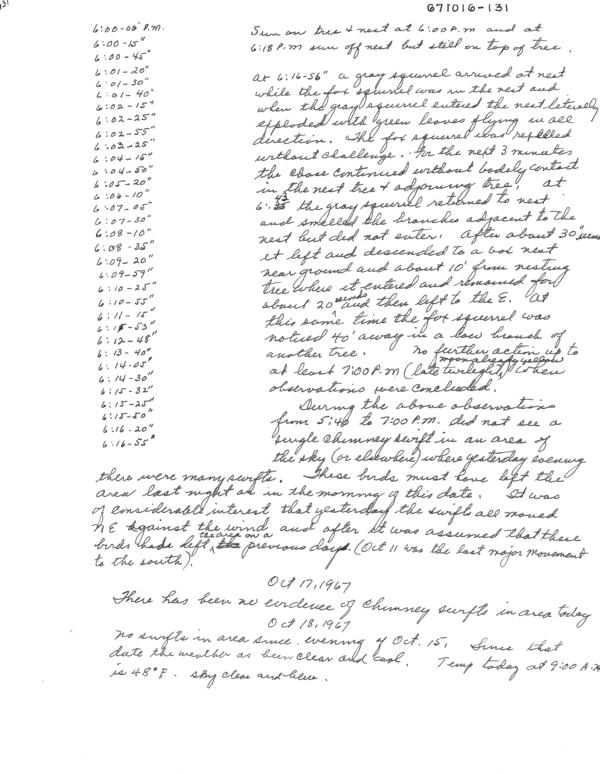 671016-131
6:00-00" P.M.
6:00-15"
6:00-45"
6:01-20"
6:01-30"
6:01-40"
6:02-15"
6:02-25"
6:02-55"
6:03-25"
6:04-15"
6:04-50"
6:05-20"
6:06-10"
6:07-05"
6:07-30"
6:08-10"
6:08-35"
6:09-20"
6:09-59"
6:10-25"
6:10-55"
6:11-15"
6:11-53"
6:12-48"
6:13-40"
6:14-05"
6:14-30"
6:15-32"
6:15-25"
6:15-50"
6:16-20"
6:16-55"
Sun on tree & nest at 6:00 P.M and at
6:18 P.M sun off nest but still on top of tree.
At 6:16-56" a gray squirrel arrived at nest
while the fox squirrel was in the nest and
when the gray squirrel entered the nest literally
exploded with green leaves flying in all
direction. The fox squirrel was repelled
without challenge. For the next 3 minutes
the chase continued without bodily contact
in the nest tree & adjoining tree. At
6:43 the gray squirrel returned to nest
and smelled the branches adjacent to the
nest but did not enter. After about 30 seconds
it left and descended to a box nest
near ground and about 10' from nesting
tree where it entered and remained for
about 20 seconds and then left to the E. At
this same time the fox squirrel was
noticed 40' away in a low branch of
another tree. No further action up to
at least 7:00 P.M (late twilight, moon already yellow) when
observations were concluded.
During the above observations
from 5:40 to 7:00 P.M. did not see a
single Chimney swift in an area of
the sky (or elsewhere) where yesterday evening
there were many swifts. These birds must have left the
area last night or in the morning of this date. It was
of considerable interest that yesterday the swifts all moved
NE against the wind and after it was assumed that these
birds had left the area on a previous day. (Oct 11 was the last major movement
to the south).
Oct 17, 1967
There has been no evidence of Chimney swifts in area today
Oct 18, 1967
No swifts in area since evening of Oct. 15. Since that
date the weather as been clear and cool. Temp today at 9:00 A.M
is 48°F. sky clear and blue.